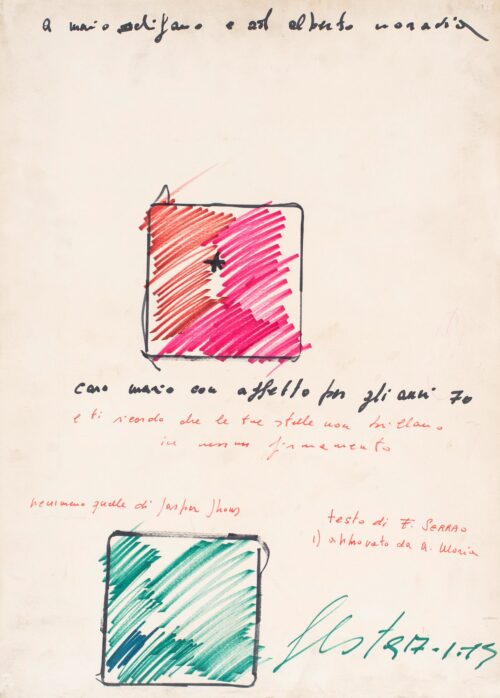 a mario schifano e ad alberto moravia
caro mario con affetto per gli anni 70
e ti ricordo che le tue stelle non brillano
in nessun firmamento
nemmeno quelle di Jasper Jhons
testo di F. SERRAO
1) approvato da A. Moria
Festa 17-1-79